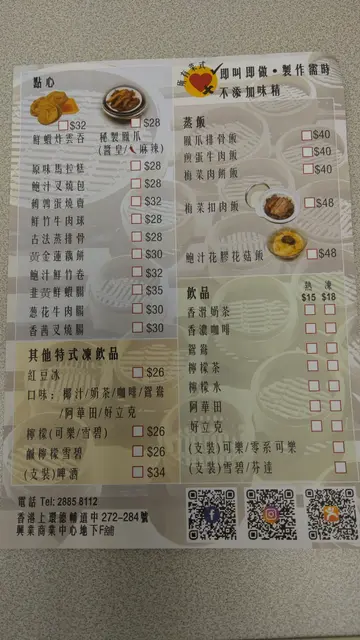 點心
鮮蝦炸雲吞 $32
秘製鳳爪 $28
(醬皇/麻辣)
原味馬拉糕 $28
鮑汁叉燒包 $28
鵪鶉蛋燒賣 $32
鮮竹牛肉球 $28
古法蒸排骨 $28
黃金蓮藕餅 $30
鮑汁鮮竹卷 $32
韭黃鮮蝦腸 $35
蔥花牛肉腸 $30
香茜叉燒腸 $30
其他特式凍飲品
紅豆冰 $26
口味：椰汁/奶茶/咖啡/鴛鴦
/阿華田/好立克
檸檬(可樂/雪碧) $26
鹹檸檬雪碧 $26
(支裝)啤酒 $34
即叫即做・製作需時
不添加味精
蒸飯
鳳爪排骨飯 $40
煎蛋牛肉飯 $40
梅菜肉餅飯 $40
梅菜扣肉飯 $48
鮑汁花膠花菇飯 $48
飲品
熱 凍
$15 $18
香滑奶茶
香濃咖啡
鴛鴦
檸檬茶
檸檬水
阿華田
好立克
(支裝)可樂/零系可樂
(支裝)雪碧/芬達
電話 Tel: 2885 8112
香港上環德輔道中 272-284號
興業商業中心地下F舖